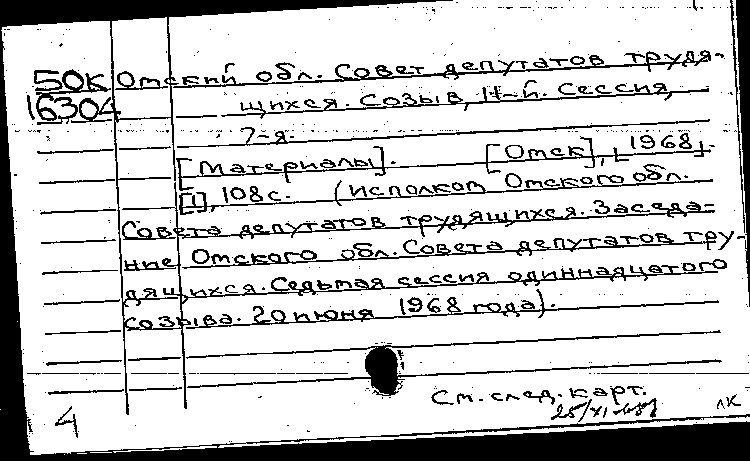 50К Омский обл. Совет депутатов трудя-
16304 щихся. Созыв, 11-й. Сессия,
7-я.
[Материалы]. [Омск], 1968.
[1], 108 с. (Исполком Омского обл.
Совета депутатов трудящихся. Заседа-
ние Омского обл. Совета депутатов тру-
дящихся. Седьмая сессия одиннадцатого
созыва. 20 июня 1968 года).
См. след. карт.
4 лк